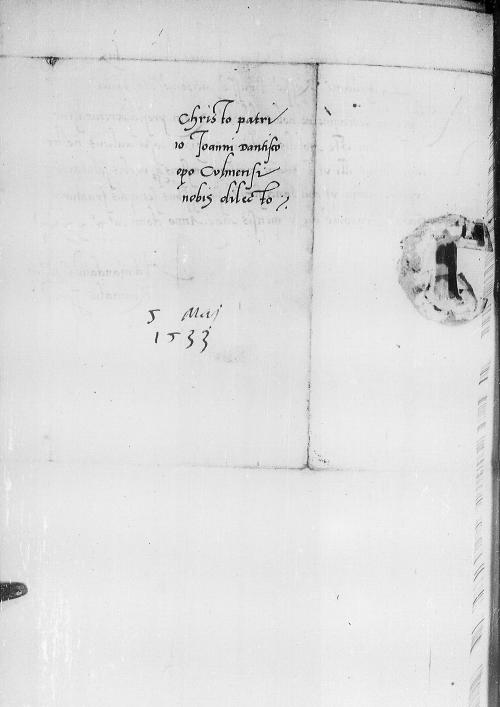 Christo patri
io Joanni Dantisco
epo Culmensi
nobis dilecto
5 Maij
1533